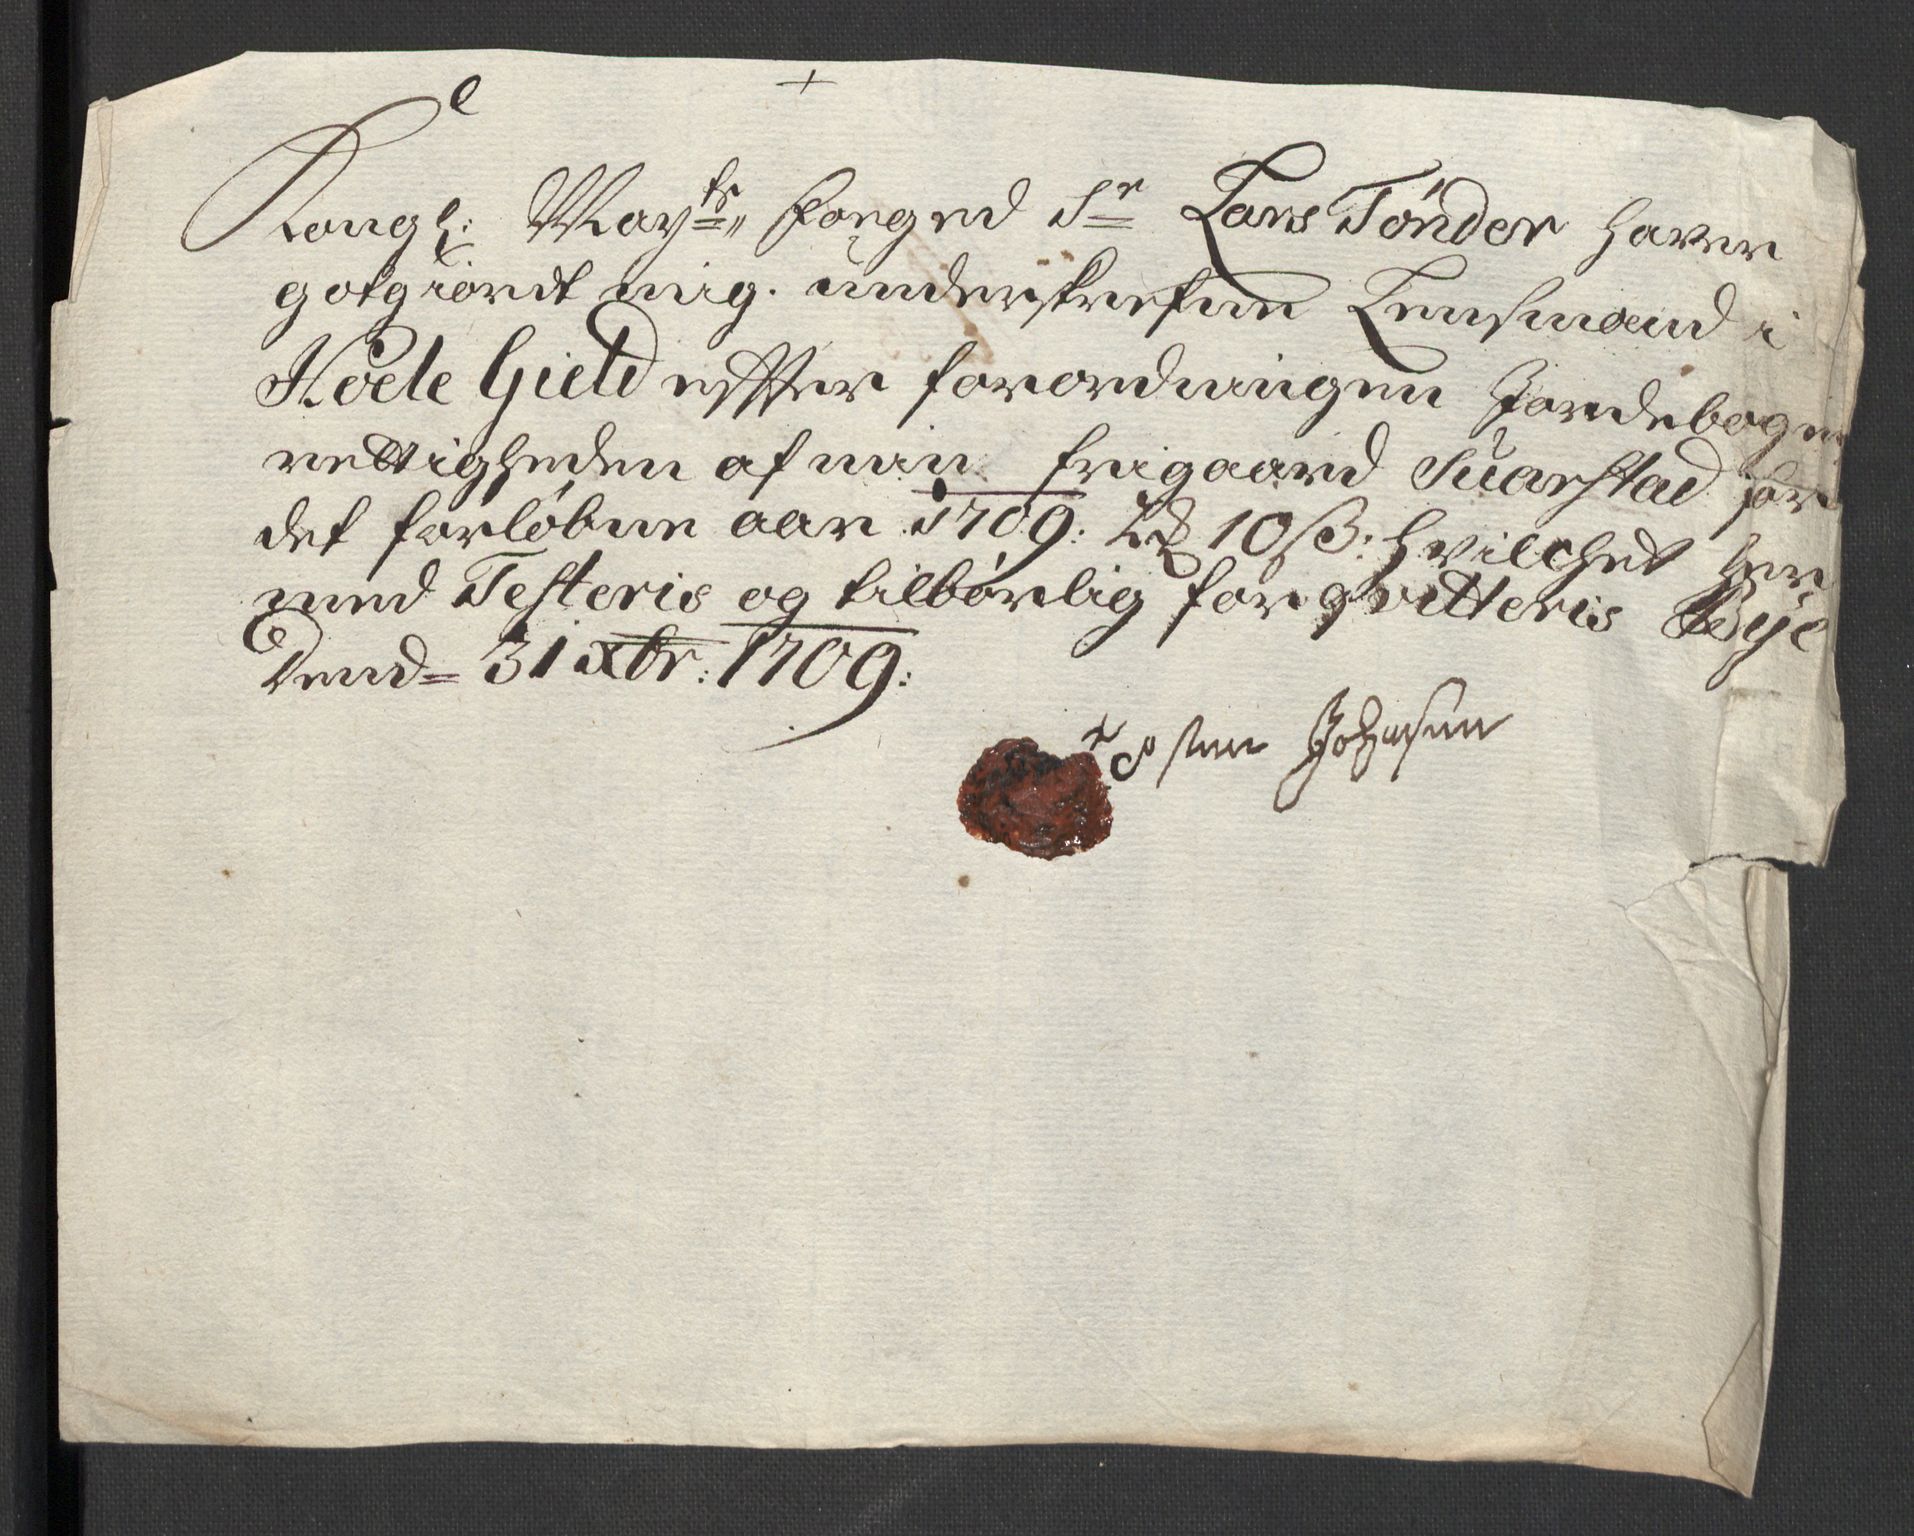 Kongl: Maÿtz„ Foeged Sr Lars Tönder haver
gotgiordt mig. underskrefne Lensmand i
gield effter forordningen Jordebogen
rettigheden af min frigaard Suarstad for
det forløbne aar 1709: 10 ß: hvilchet her
med Testeris og tilbørlig for qvitteris Bÿe
Dend= 31 xbr: 1709:
Johnsen